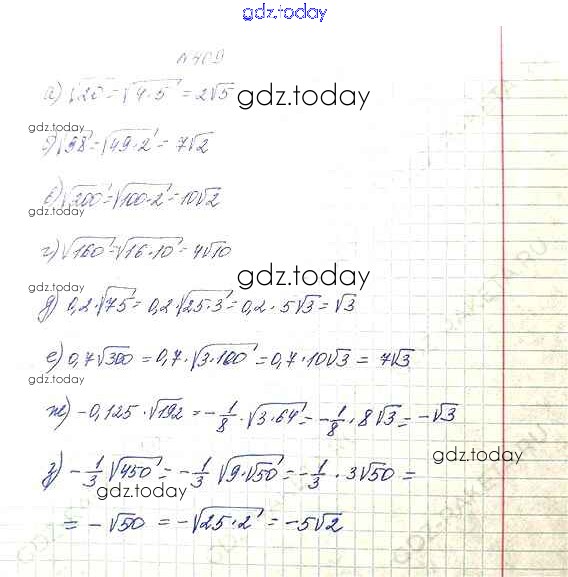 gdz.today
№409
а) √20 = √4·5 = 2√5
gdz.today
gdz.today
б) √98 = √49·2 = 7√2
в) √200 = √100·2 = 10√2
gdz.today
г) √160 = √16·10 = 4√10
gdz.today
gdz.today
д) 0,2·√75 = 0,2·√25·3 = 0,2·5√3 = √3
е) 0,7√300 = 0,7·√3·100 = 0,7·10√3 = 7√3
gdz.today
ж) -0,125·√192 = -1/8·√3·64 = -1/8·8√3 = -√3
gdz.today
з) -1/3√450 = -1/3 √9·√50 = -1/3·3√50 =
gdz.today
= -√50 = -√25·2 = -5√2
GDZ-RAKETA.RU
GDZ-RAKETA.RU